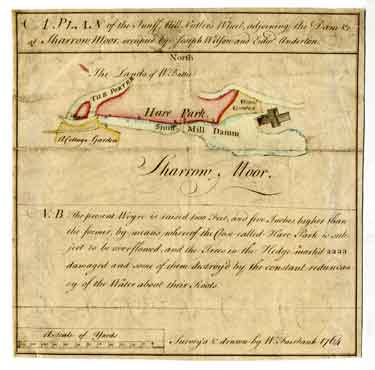 A PLAN of the Snuff Mill, Cutlers Wheel, adjoining the Dam &c
at Sharrow Moor, occupied by Joseph Wilson and Anderton.
North
The Lands of W. Battie
THE PORTER
Hare Park
Wood
Garden
Snuff Mill Damm
A Cottage Garden
Sharrow Moor.
N.B The present Weyre is raised two Feet, and five Inches higher than
the former, by means whereof the Close called Hare Park is sub-
ject to be overflowed, and the Trees in the Hedge mark'd aaaa
damaged and some of them destroy'd by the constant redundan-
cy of the Water about their Roots.
A Scale of Yards
Survey'd & drawn by W. Fairbank 1764